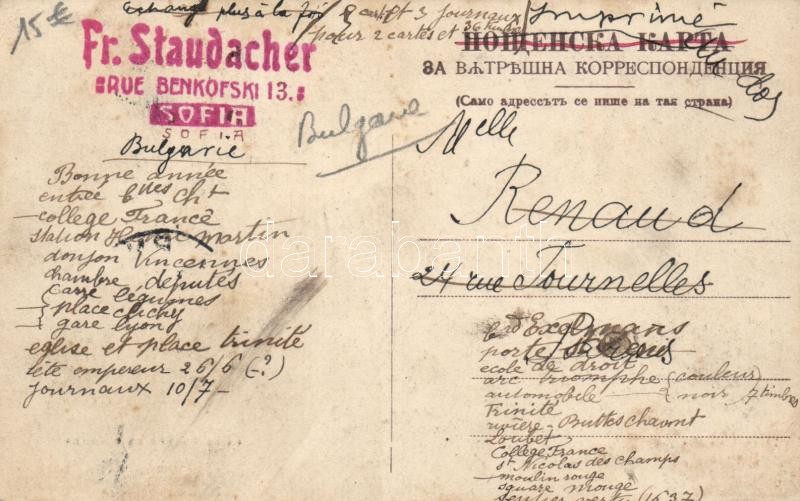 15 €
Echange plus à la fois 2 cartes et 3 journaux
pour 2 cartes et 36 timbres
Imprimé
Fr. Staudacher
RUE BENKOFSKI 13.
SOFIA
SOFIA
Bulgarie
Bulgarie
ПОЩЕНСКА КАРТА
ЗА ВѢТРѢШНА КОРРЕСПОНДЕНЦИЯ
(Само адрессътъ се пише на тая страна)
Melle
Renaud
24 rue Tournelles
Bonne année
entrée bnes Cht
college France
station St Martin
donjon Vincennes
chambre députés
carré légumes
place clichy
gare lyon
eglise et place trinité
tête empereur 26/6 (-?)
journaux 10/7 -
bd Exelmans
porte St Denis
ecole de droit
arc triomphe (couleur
automobile noir 7 timbres
Trinité
rivière - Buttes chaumont
Loubet
College France
St Nicolas des champs
moulin rouge
square Monge
sentier vert (1637)
darabanth